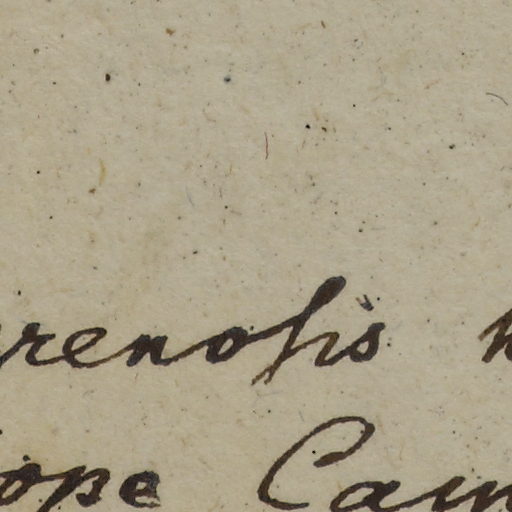 renosis
ope Cam